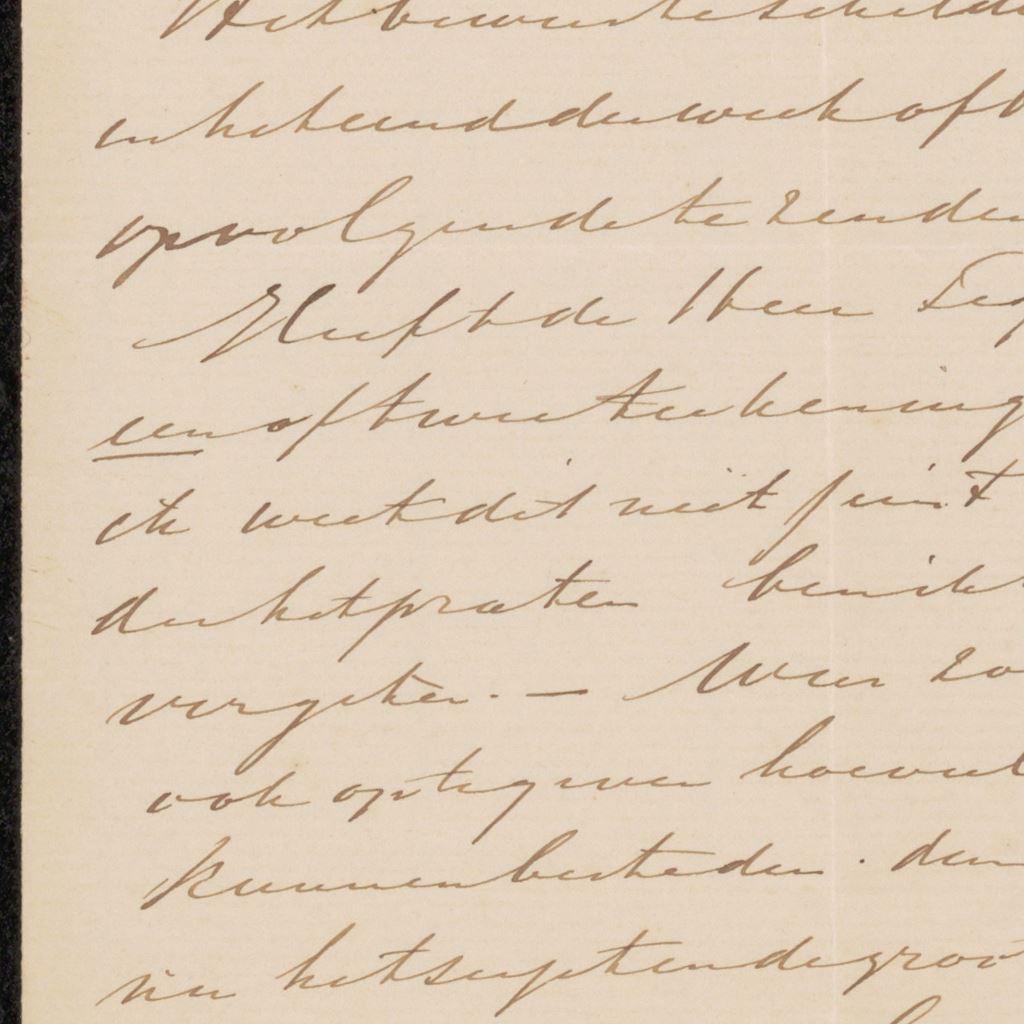 Het bewuste schilde
in het eind der week of b
opvolgende te zenden
Heeft de Heer
een of twee teekening
ik weet dit niet juist
der het praten
vergeten. — Weer zo
ook op te geven hoeveel
kunnen besteden. den
in het en de groo